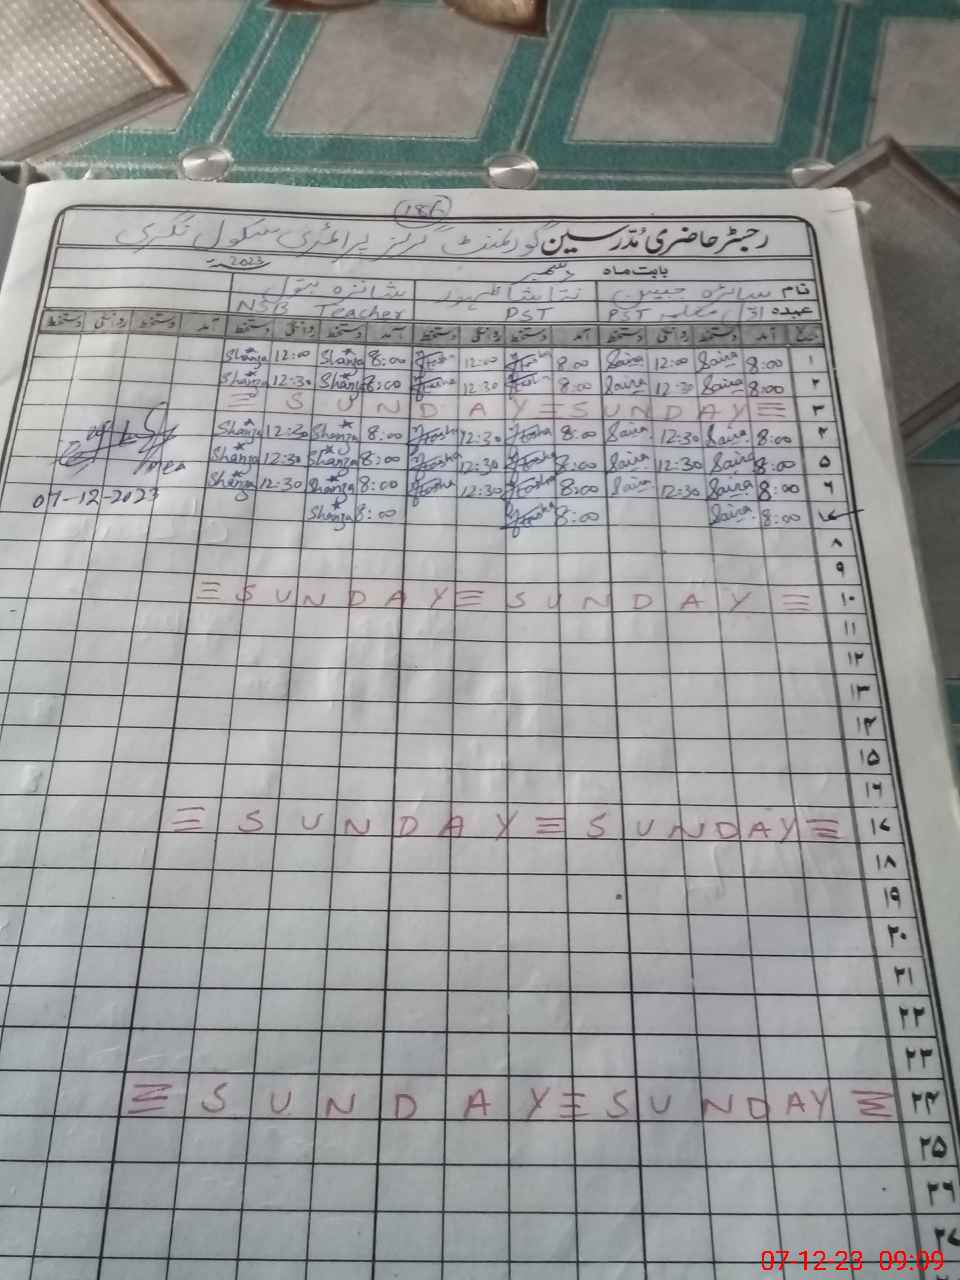 186
رجسٹر حاضری مُدّرسین گورنمنٹ گرلز پرائمری سکول نگری
بابت ماہ دسمبر 2023
نام سائرہ جبیں نتاشا ظہور شائزہ بتول
عہدہ PST PST NSB Teacher
تاریخ آمد دستخط روانگی دستخط آمد دستخط روانگی دستخط آمد دستخط روانگی دستخط آمد دستخط روانگی دستخط
۱ 8:00 Saira 12:00 Saira 8:00 12:00 8:00 Shanza 12:00 Shanza
۲ 8:00 Saira 12:30 Saira 8:00 12:30 8:00 Shanza 12:30 Shanza
۳ ≡ SUNDAY ≡ SUNDAY ≡
۴ 8:00 Saira 12:30 Saira 8:00 12:30 8:00 Shanza 12:30 Shanza
۵ 8:00 Saira 12:30 Saira 8:00 12:30 8:00 Shanza 12:30 Shanza
۶ 8:00 Saira 12:30 Saira 8:00 12:30 8:00 Shanza 12:30 Shanza
07-12-2023
۷ 8:00 Saira 8:00 8:00 Shanza
۸
۹
۱۰ ≡ SUNDAY ≡ SUNDAY ≡
۱۱
۱۲
۱۳
۱۴
۱۵
۱۶
۱۷ ≡ SUNDAY ≡ SUNDAY ≡
۱۸
۱۹
۲۰
۲۱
۲۲
۲۳
۲۴ ≡ SUNDAY ≡ SUNDAY ≡
۲۵
۲۶
۲۷
07-12-23 09:09